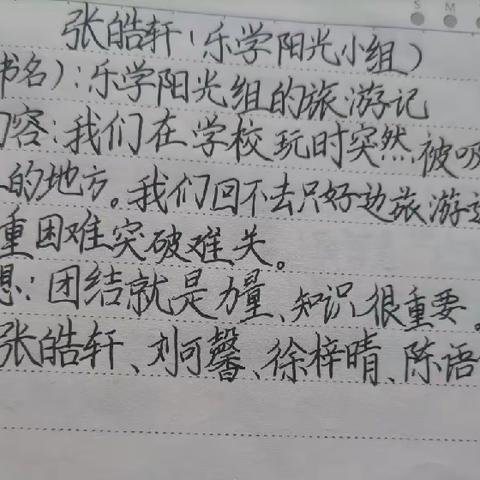 张皓轩(乐学阳光小组)
书名):乐学阳光组的旅游记
内容:我们在学校玩时突然被吸
的地方。我们回不去只好边旅游边
重困难突破难关。
想:团结就是力量、知识很重要。
张皓轩、刘可馨、徐梓晴、陈语